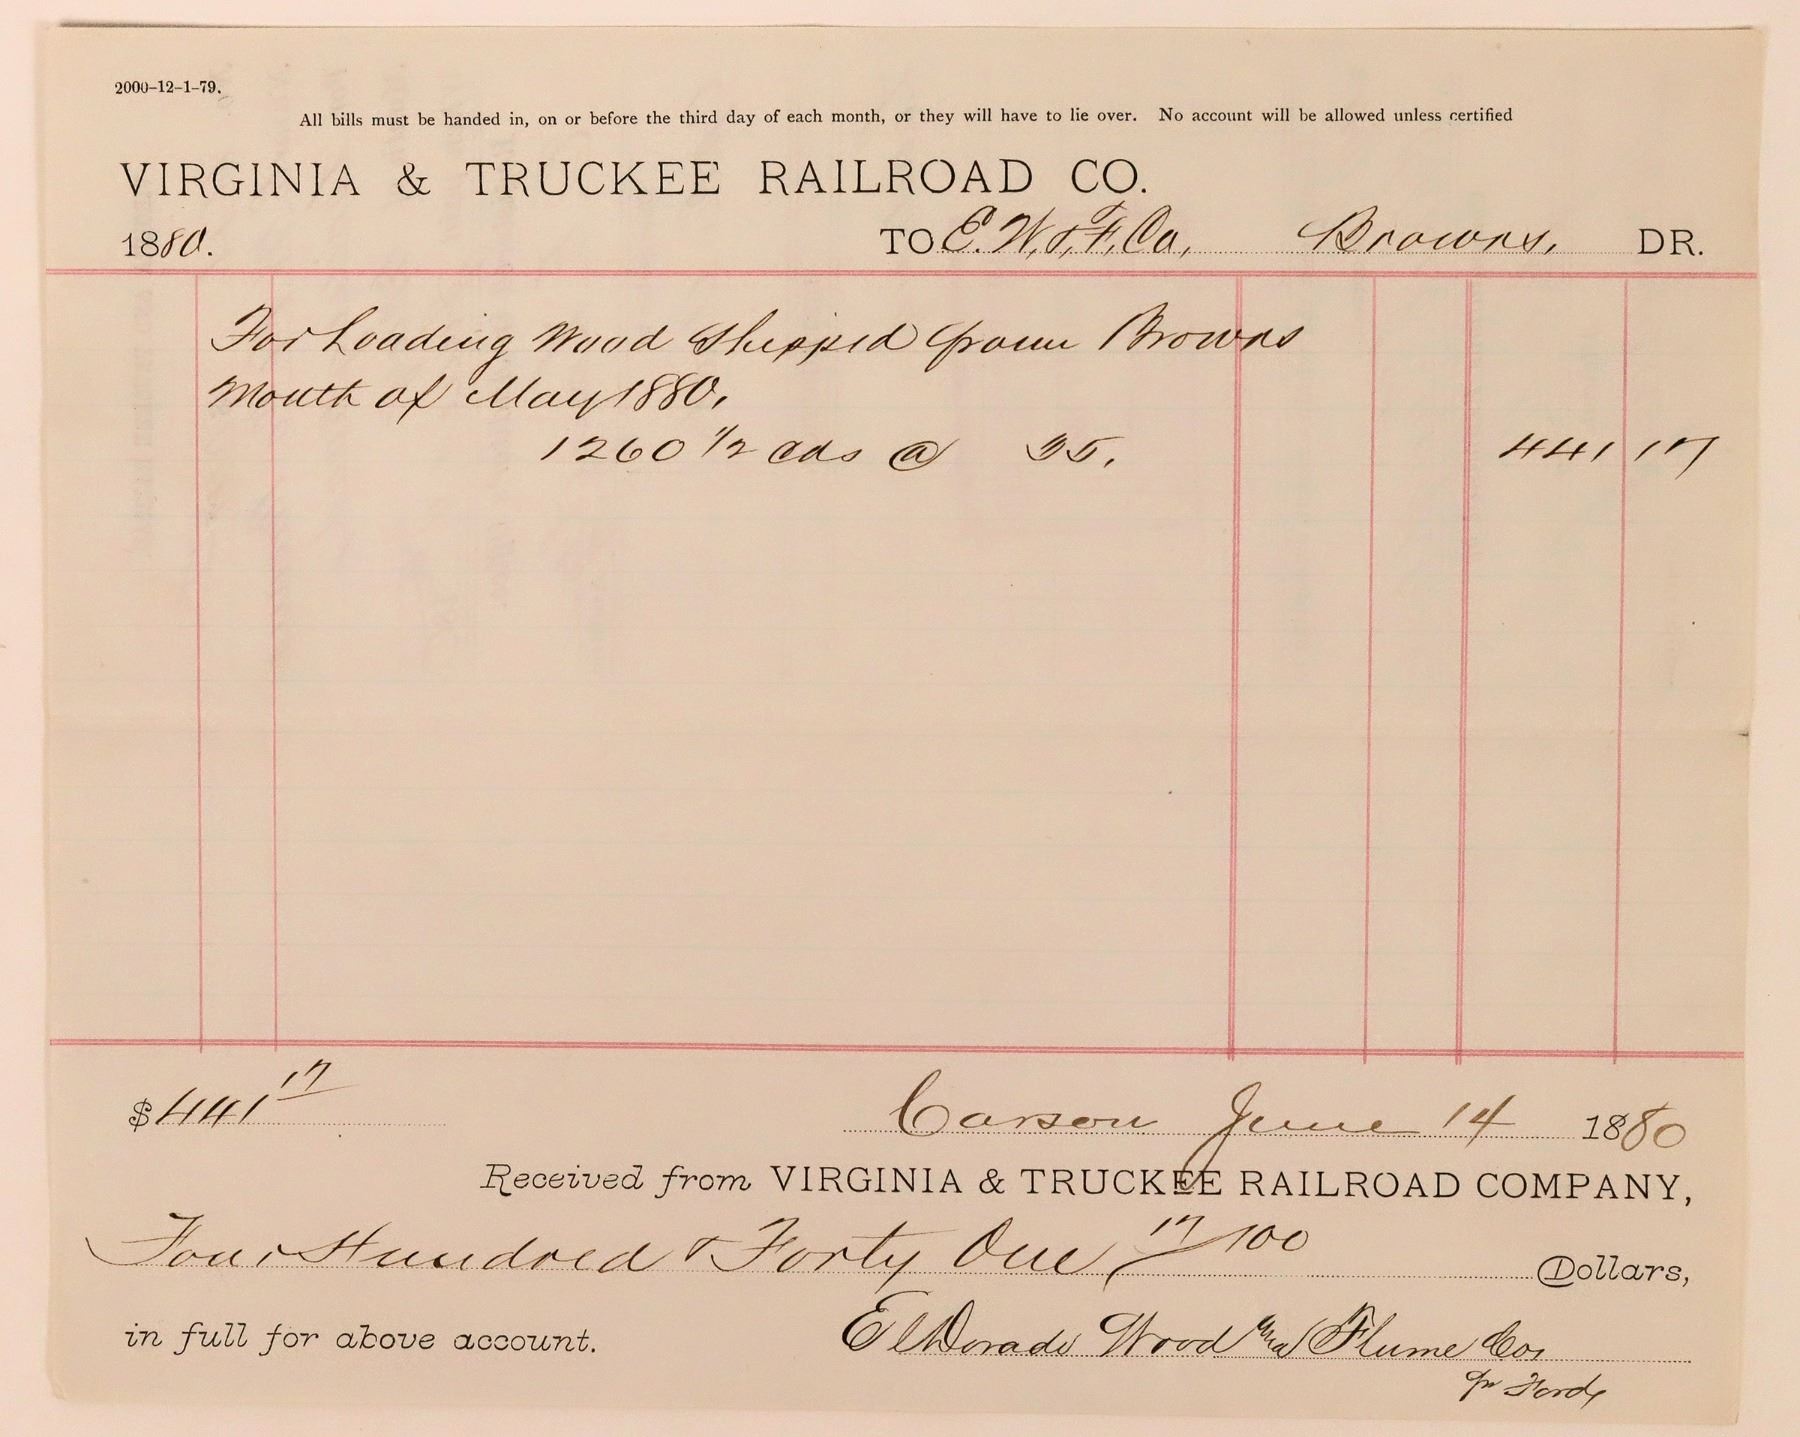 2000-12-1-79.
All bills must be handed in, on or before the third day of each month, or they will have to lie over. No account will be allowed unless certified
VIRGINIA & TRUCKEE RAILROAD CO.
1880. TO E. W. & F. Co, Browns, DR.
For Loading Wood Shipped from Browns
Month of May 1880,
1260 1/2 cds @ 35. 441 17
$441 17
Carson June 14 1880
Received from VIRGINIA & TRUCKEE RAILROAD COMPANY,
Four Hundred & Forty One, 17/100 Dollars,
in full for above account. El Dorado Wood and Flume Co,
pr Forde